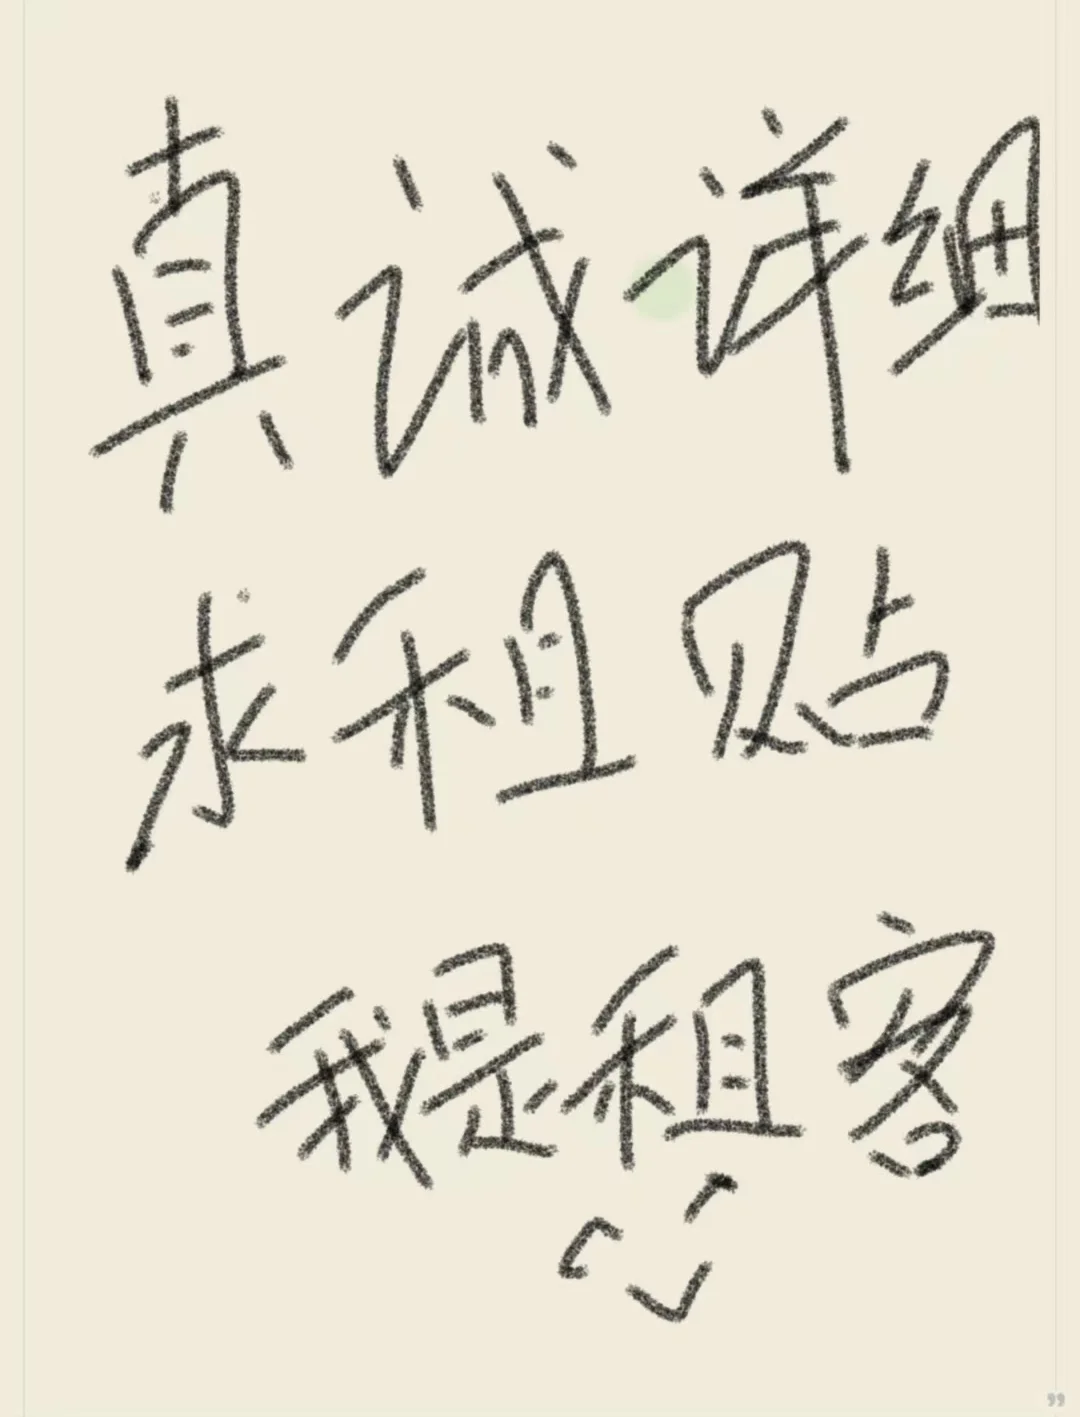 真诚详细
求租贴
我是租客